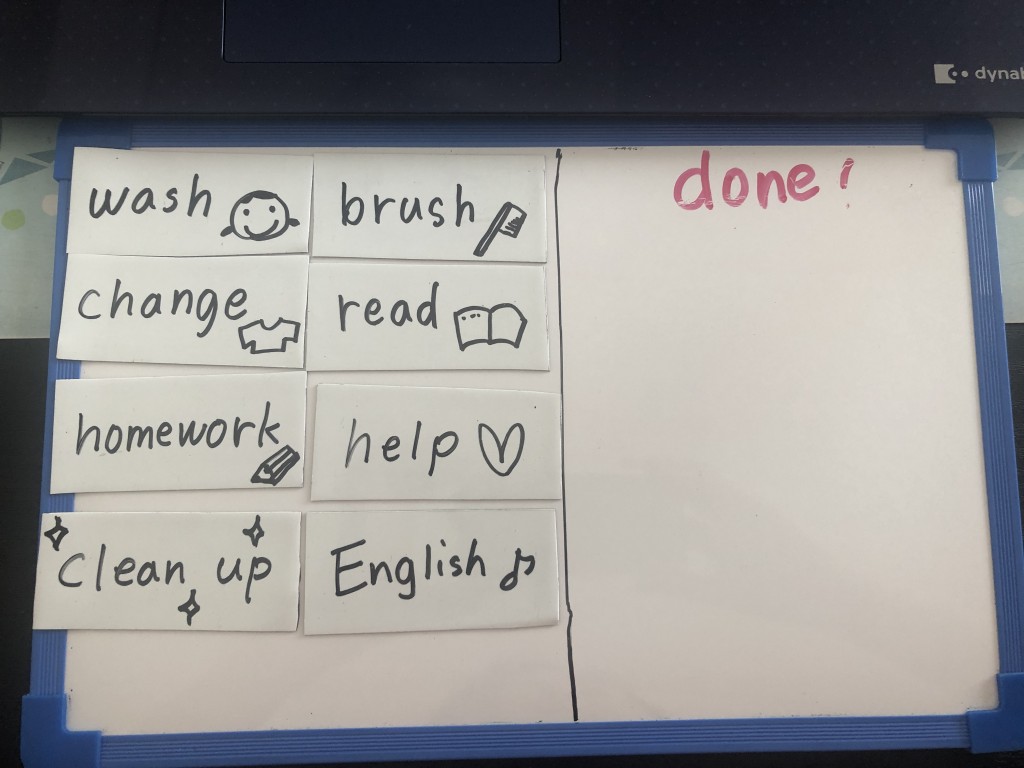 wash
brush
change
read
homework
help
clean up
English
done!